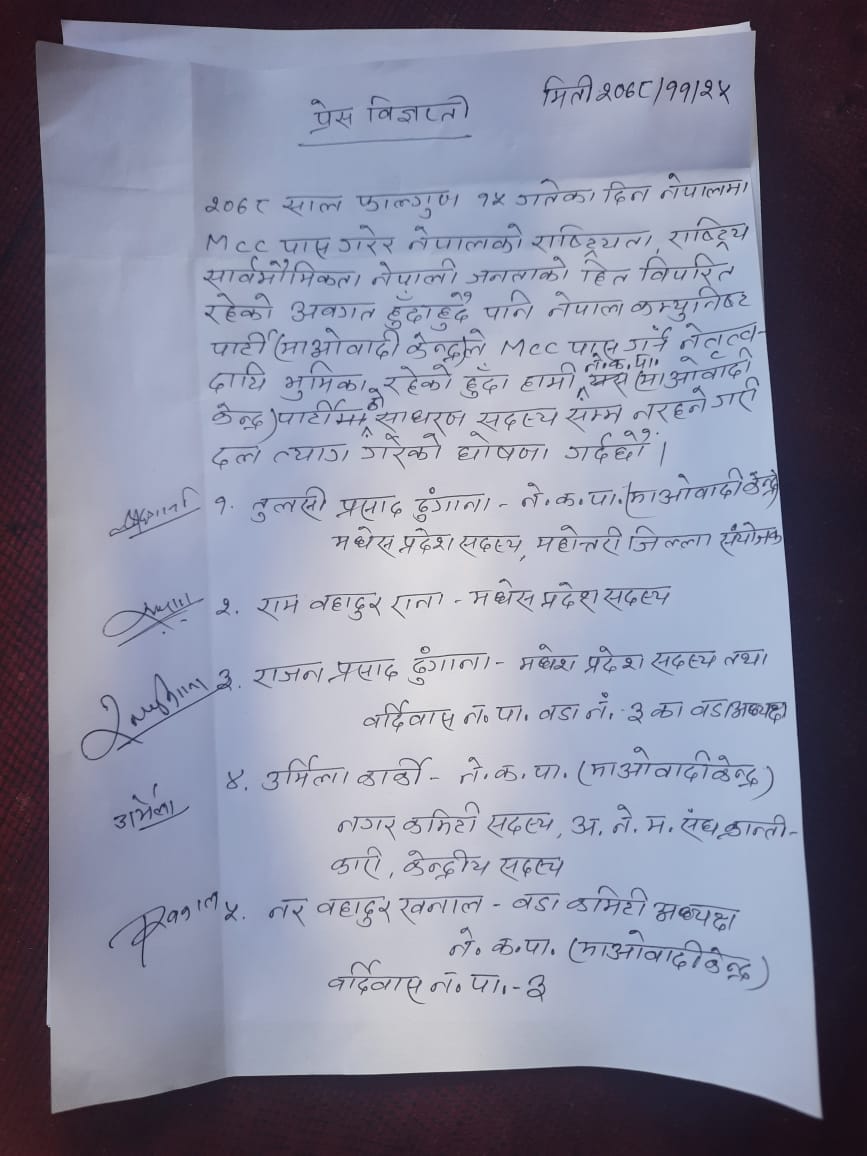 मिती २०७८/११/२५
प्रेस विज्ञप्ती
२०७८ साल फाल्गुण १५ गतेका दिन नेपालमा
MCC पास गरेर नेपालको राष्ट्रियता, राष्ट्रिय
सार्वभौमिकता नेपाली जनताको हित विपरित
रहेको अवगत हुँदाहुदै पनि नेपाल कम्युनिष्ट
पार्टी (माओवादी केन्द्र)ले MCC पास गर्न नेतृत्व-
दायि भुमिका रहेको हुँदा हामी ने.क.पा. (माओवादी
केन्द्र) पार्टीको साधरण सदस्य सम्म नरहने गरी
दल त्याग गरेको घोषणा गर्दछौं ।
१. तुलसी प्रसाद ढुंगाना - ने.क.पा. (माओवादी केन्द्र)
मधेस प्रदेश सदस्य, महोत्तरी जिल्ला संयोजक
२. राम वहादुर राना - मधेस प्रदेश सदस्य
३. राजन प्रसाद ढुंगाना - मधेश प्रदेश सदस्य तथा
वर्दिवास न.पा. वडा नं. - ३ का वडा अध्यक्ष
उर्मिला
४. उर्मिला कार्की - ने.क.पा. (माओवादी केन्द्र)
नगर कमिटी सदस्य, अ. ने. म. संघ, क्रान्ती-
कारी, केन्द्रीय सदस्य
५. नर वहादुर खनाल - वडा कमिटी अध्यक्ष
ने. क.पा. (माओवादी केन्द्र)
वर्दिवास न.पा. - ३